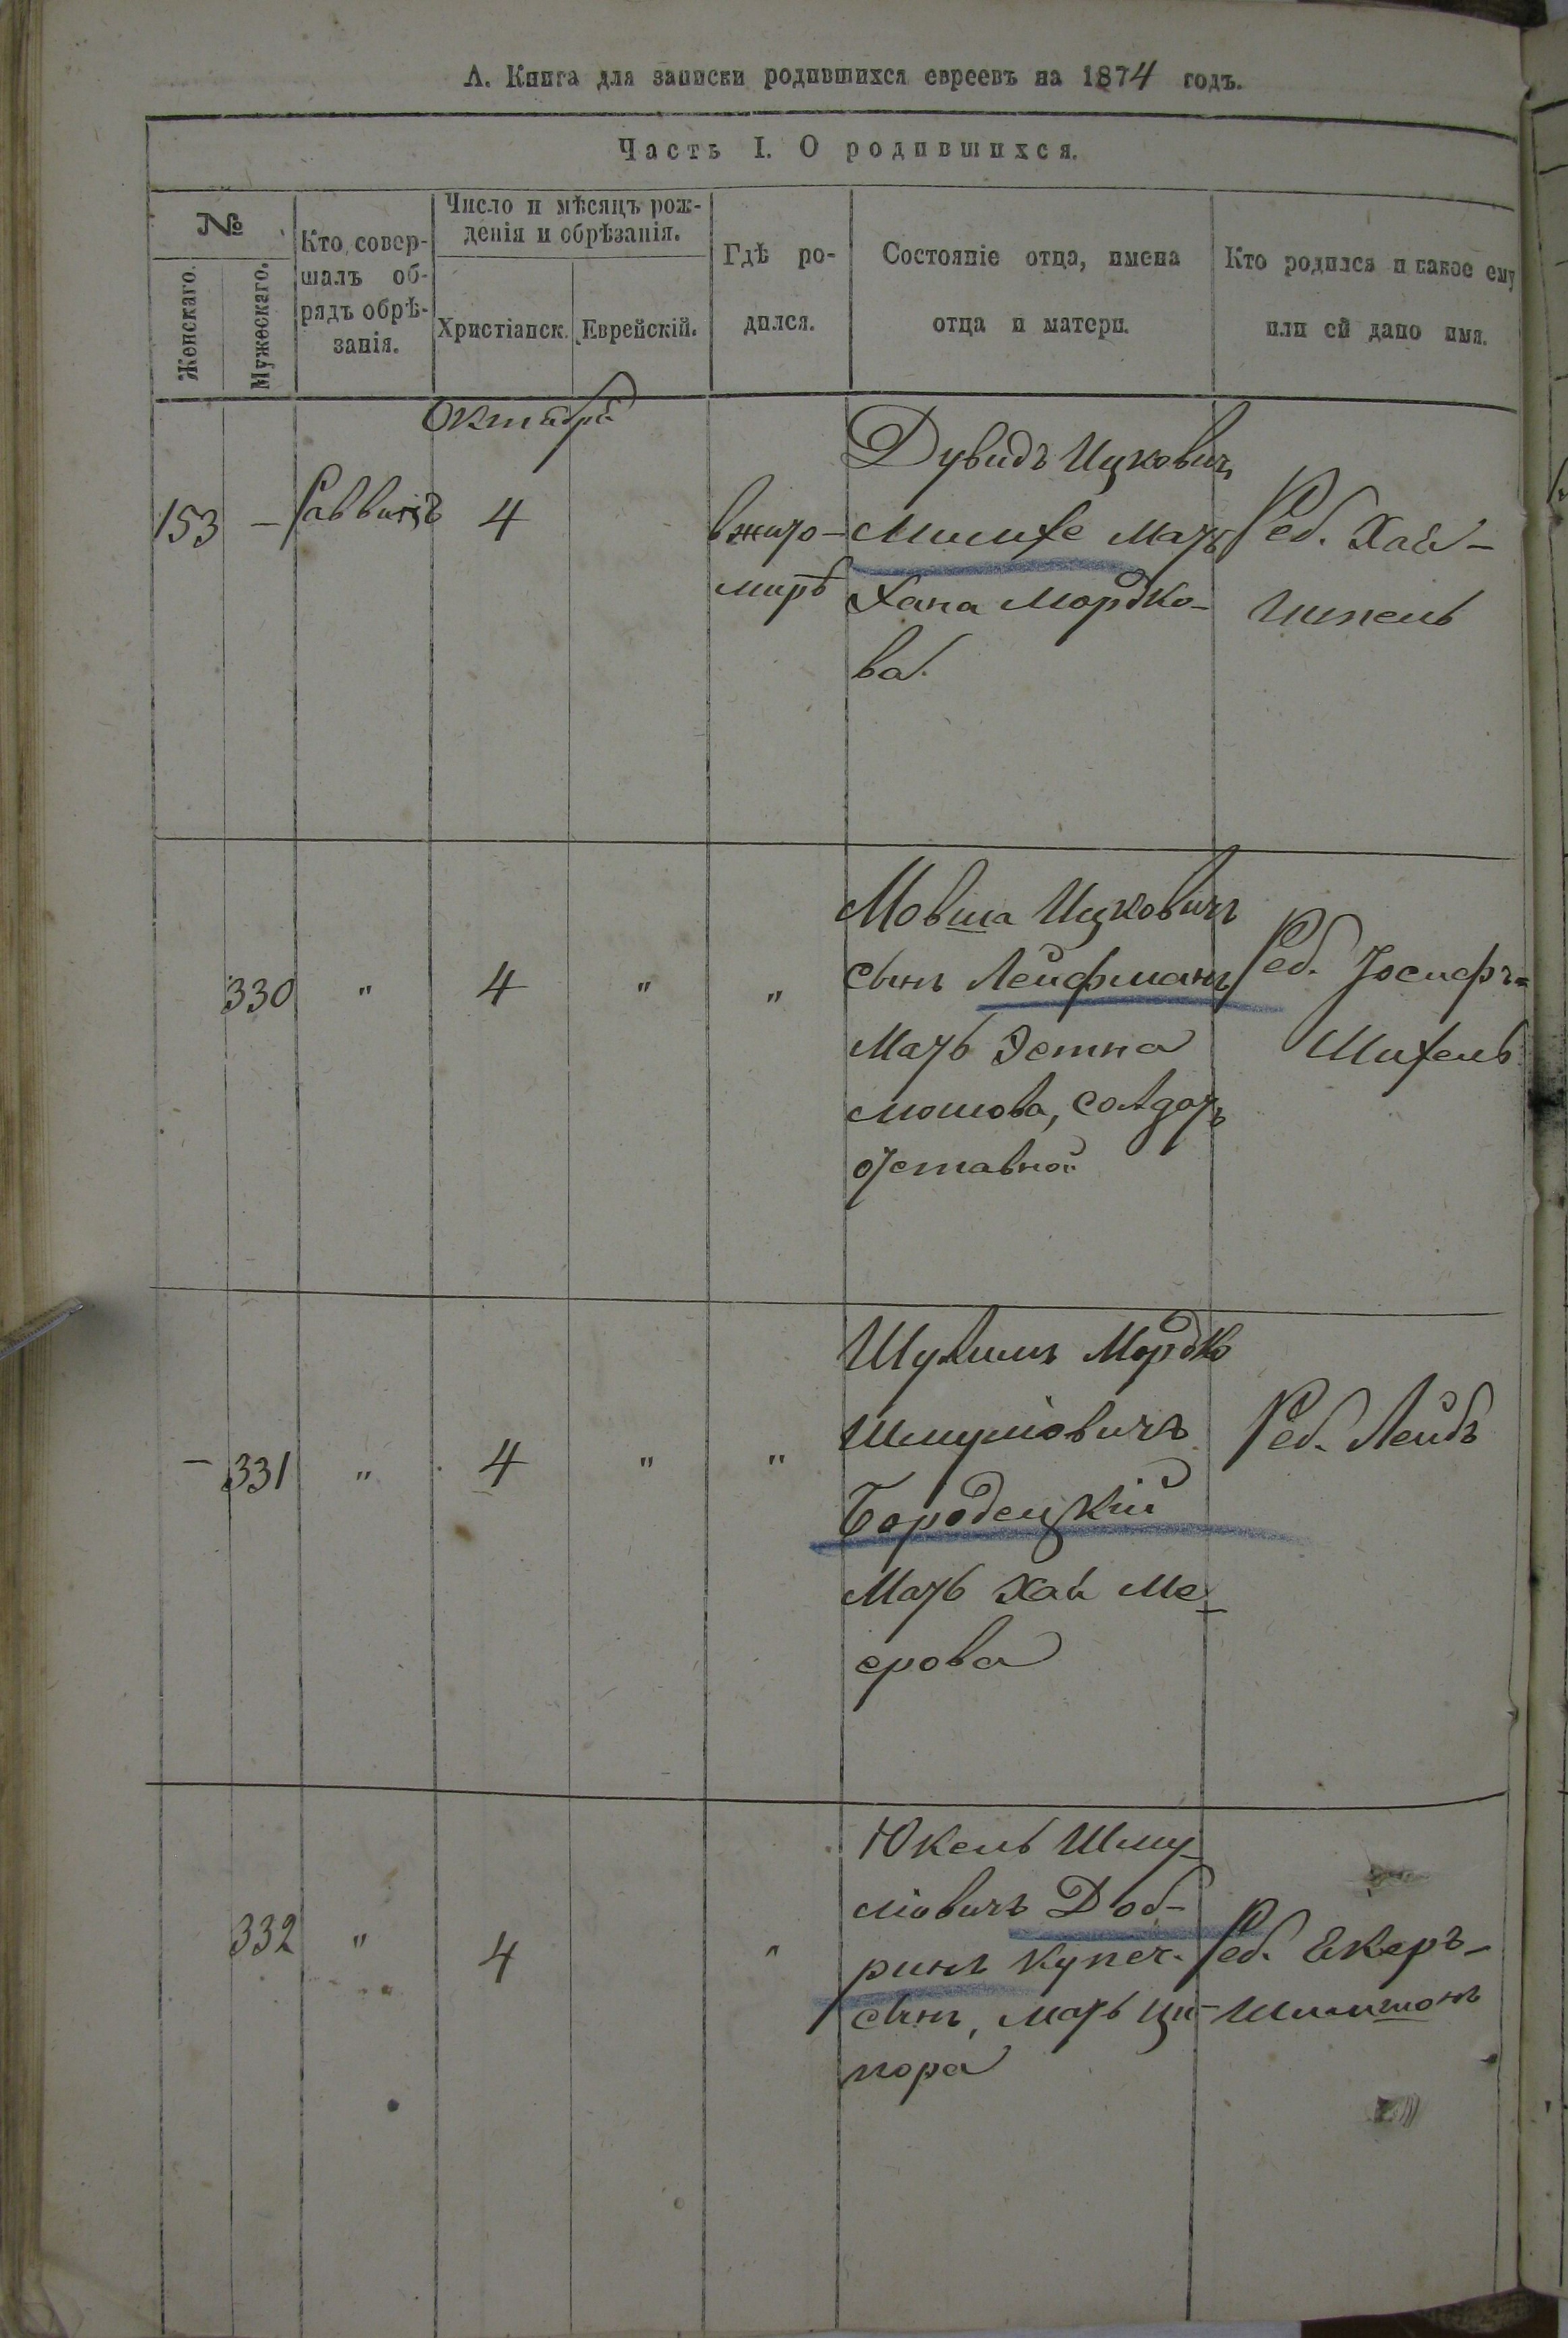 А. Книга для записки родившихся евреевъ на 1874 годъ.
Часть I. О родившихся.
№
Женскаго.
Мужескаго.
Кто совер-
шалъ об-
рядъ обрѣ-
занія.
Число и мѣсяцъ рож-
денія и обрѣзанія.
Христіанск.
Еврейскій.
Гдѣ ро-
дился.
Состояніе отца, имена
отца и матери.
Кто родился и какое ему
или ей дано имя.
Октября
153 — Раввинъ 4
вжито-
миръ
Дувидъ Ицкович
Милихе Мать
Хана Мордко-
ва
Реб. Хая-
Ципель
330 " 4 " "
Мовша Ицковичъ
сынъ Лейфманъ
Мать Эстна
мошова, солдатъ
отставной
Реб. Іосифъ=
Михель
— 331 " 4 " "
Шулимъ Мордко
Шмуліовичъ
Бородецкій
Мать Хая Ме-
ерова
Реб. Лейбъ
332 " 4 "
Юкель Шму-
ліовичъ Доб-
ринъ купеч.
сынъ, мать Ци-
пора
Реб. Екеръ-
Шимшонъ